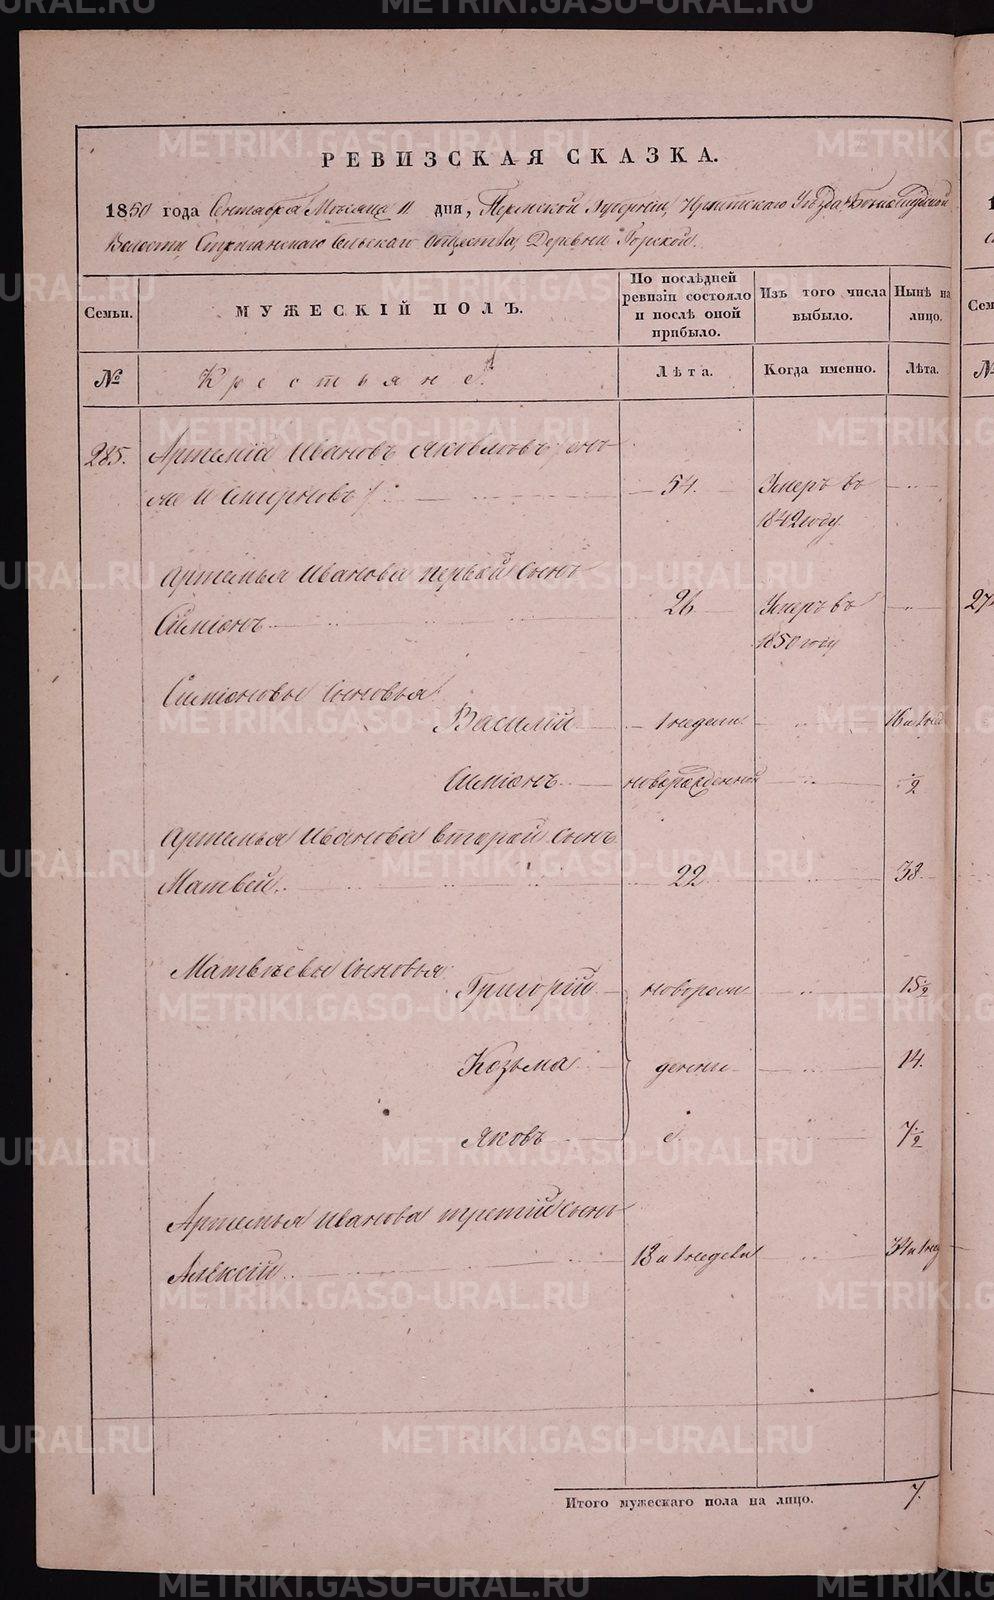 РЕВИЗСКАЯ СКАЗКА.
1850 года Сентября Месяца 11 дня, Пермской Губернiи, Ирбитскаго Уѣзда
Волости, Сельскаго Общества, Деревни Горской.
Семьи.
МУЖЕСКIЙ ПОЛЪ.
По послѣдней
ревизiи состояло
и послѣ оной
прибыло.
Изъ того числа
выбыло.
Нынѣ на
лицо.
№
Крестьяне.
Лѣта.
Когда именно.
Лѣта.
285.
Артемiй Ивановъ Яковлевъ /онъ
же и Смирновъ/
54.
Умеръ въ
1842 году
Артемья Иванова первой сынъ
Симiонъ
26
Умеръ въ
1850 году
Симiоновы сыновья
Василiй
1 недели
16 и 1 нед
Симiонъ
новорожденной
½
Артемья Иванова второй сынъ
Матвей
22
38
Матвѣевы сыновья
Григорiй
новорож
15½
Козьма
денны
14.
Яковъ
е.
7½
Артемья Иванова третiй сынъ
Алексiй
18 и 1 недели
34 и 1 нед
Итого мужескаго пола на лицо.
7.
27
METRIKI.GASO-URAL.RU